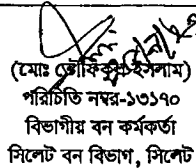 (মোঃ তৌফিকুল ইসলাম)
পরিচিতি নম্বর-১৩১৭০
বিভাগীয় বন কর্মকর্তা
সিলেট বন বিভাগ, সিলেট